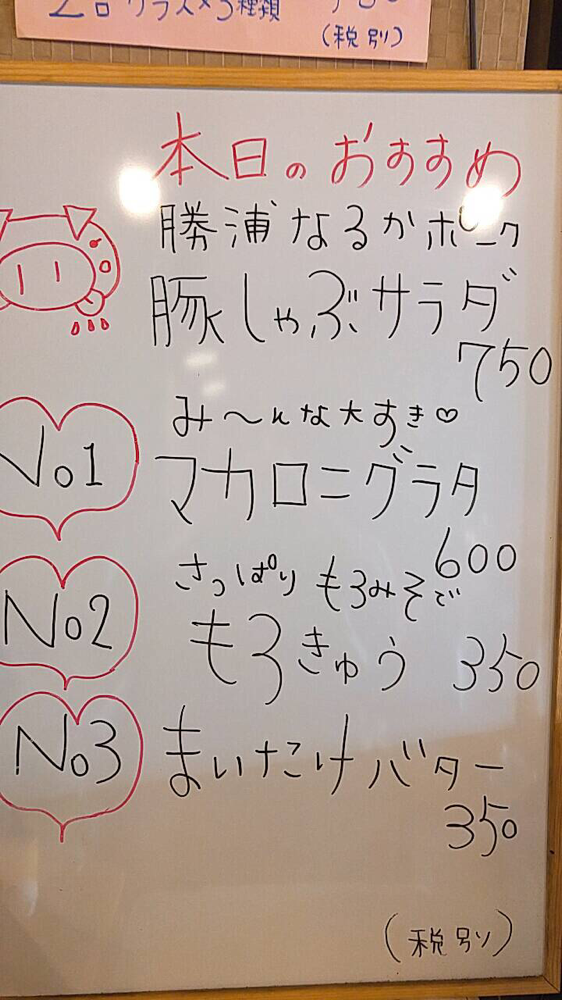 2合グラス×3種類
(税別)
本日のおすすめ
勝浦なるかポーク
豚しゃぶサラダ
750
み〜んな大すき♡
No1
マカロニグラタ
600
さっぱりもろみそで
No2
もろきゅう 350
No3
まいたけバター
350
(税別)